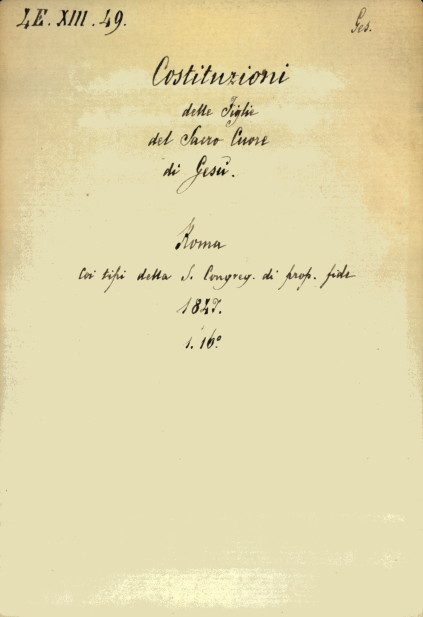 4E. XIII. 49.
Ges.
Costituzioni
delle Figlie
del Sacro Cuore
di Gesù.
Roma
Coi tipi della S. Congreg. di prop. fide
1847.
1. 16º